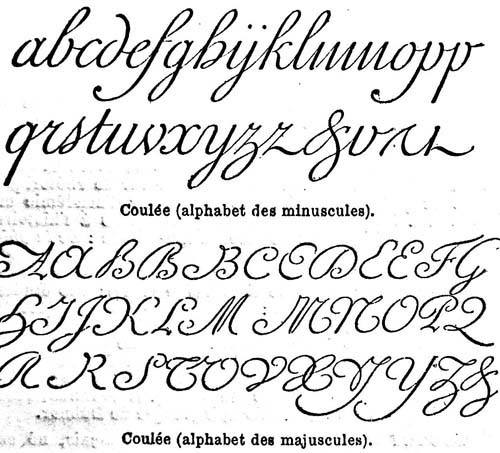 abcdefghijklmnopp
qrstuvxyzz&vru
Coulée (alphabet des minuscules).
AABBBCCDEEFG
HIJKLMMNOPQ
RRSTOVXYYZ&
Coulée (alphabet des majuscules).